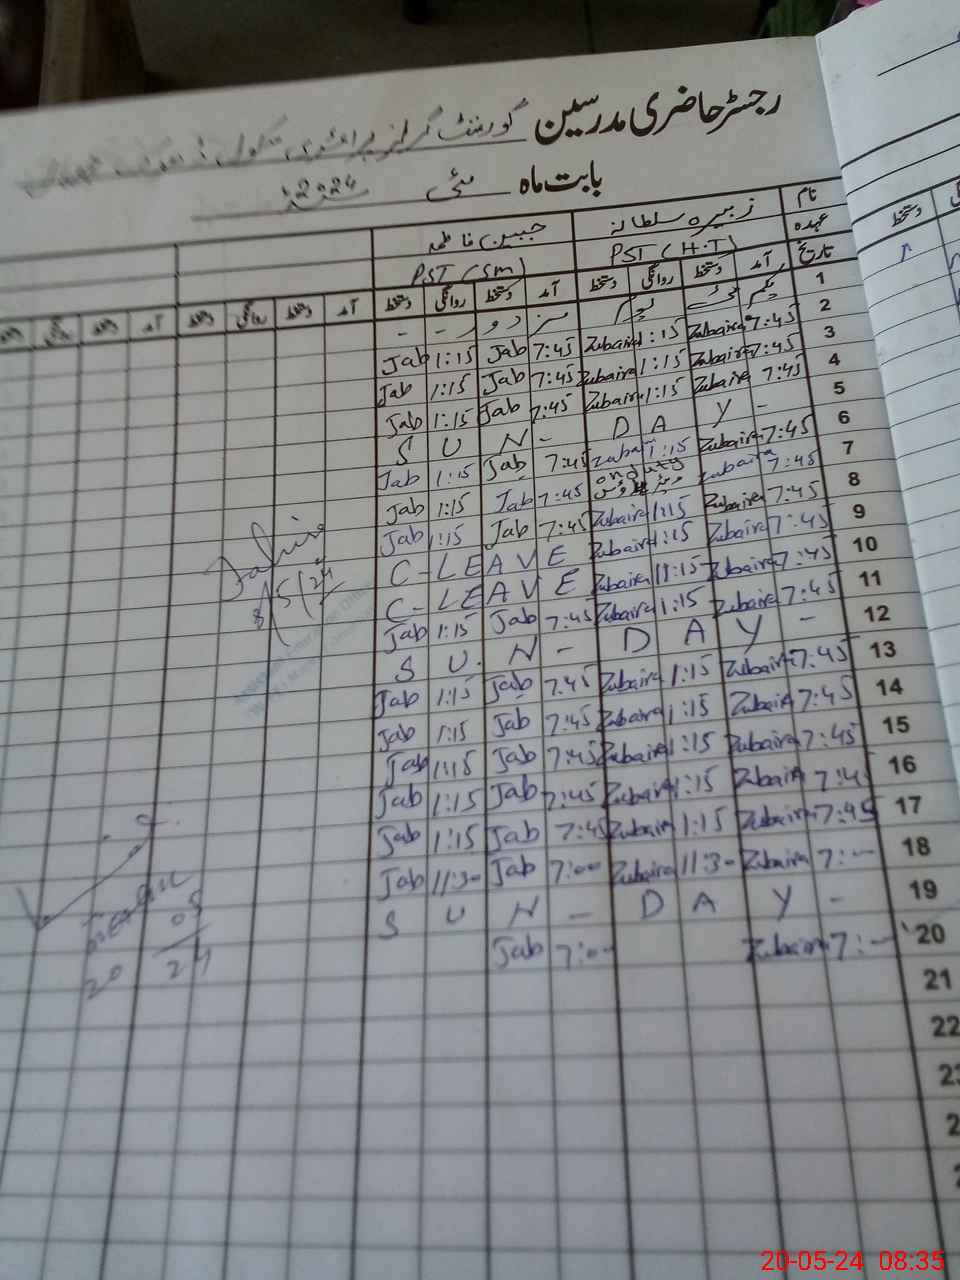 رجسٹر حاضری مدرسین گورنمنٹ گرلز پرائمری سکول
بابت ماہ مئی 2024
نام زبیرہ سلطانہ جبین فاطمہ
عہدہ PST (H.T) PST (SM)
تاریخ آمد دستخط روانگی دستخط آمد دستخط روانگی دستخط آمد دستخط روانگی دستخط آمد دستخط روانگی دستخط
1 یکم مئی یوم مزدور - -
2 7:45 Zubaira 1:15 Zubaira 7:45 Jab 1:15 Jab
3 7:45 Zubaira 1:15 Zubaira 7:45 Jab 1:15 Jab
4 7:45 Zubaira 1:15 Zubaira 7:45 Jab 1:15 Jab
5 S U N - D A Y -
6 7:45 Zubaira 1:15 Zubai 7:45 Jab 1:15 Jab
7 7:45 Zubaira on duty 7:45 Jab 1:15 Jab
8 7:45 Zubaira 1:15 Zubaira 7:45 Jab 1:15 Jab
9 7:45 Zubaira 1:15 Zubaira C-LEAVE
10 7:45 Zubaira 11:15 Zubaira C-LEAVE
11 7:45 Zubaira 1:15 Zubaira 7:45 Jab 1:15 Jab
12 S U N - D A Y -
13 7:45 Zubaira 1:15 Zubaira 7:45 Jab 1:15 Jab
14 7:45 Zubaira 1:15 Zubaira 7:45 Jab 1:15 Jab
15 7:45 Zubaira 1:15 Zubaira 7:45 Jab 1:15 Jab
16 7:45 Zubaira 1:15 Zubaira 7:45 Jab 1:15 Jab
17 7:45 Zubaira 1:15 Zubaira 7:45 Jab 1:15 Jab
18 7:00 Zubaira 11:30 Zubaira 7:00 Jab 11:30 Jab
19 S U N - D A Y -
20 7:00 Zubaira 7:00 Jab
21
22
8/5/24
20 05 24
دستخط
20-05-24 08:35